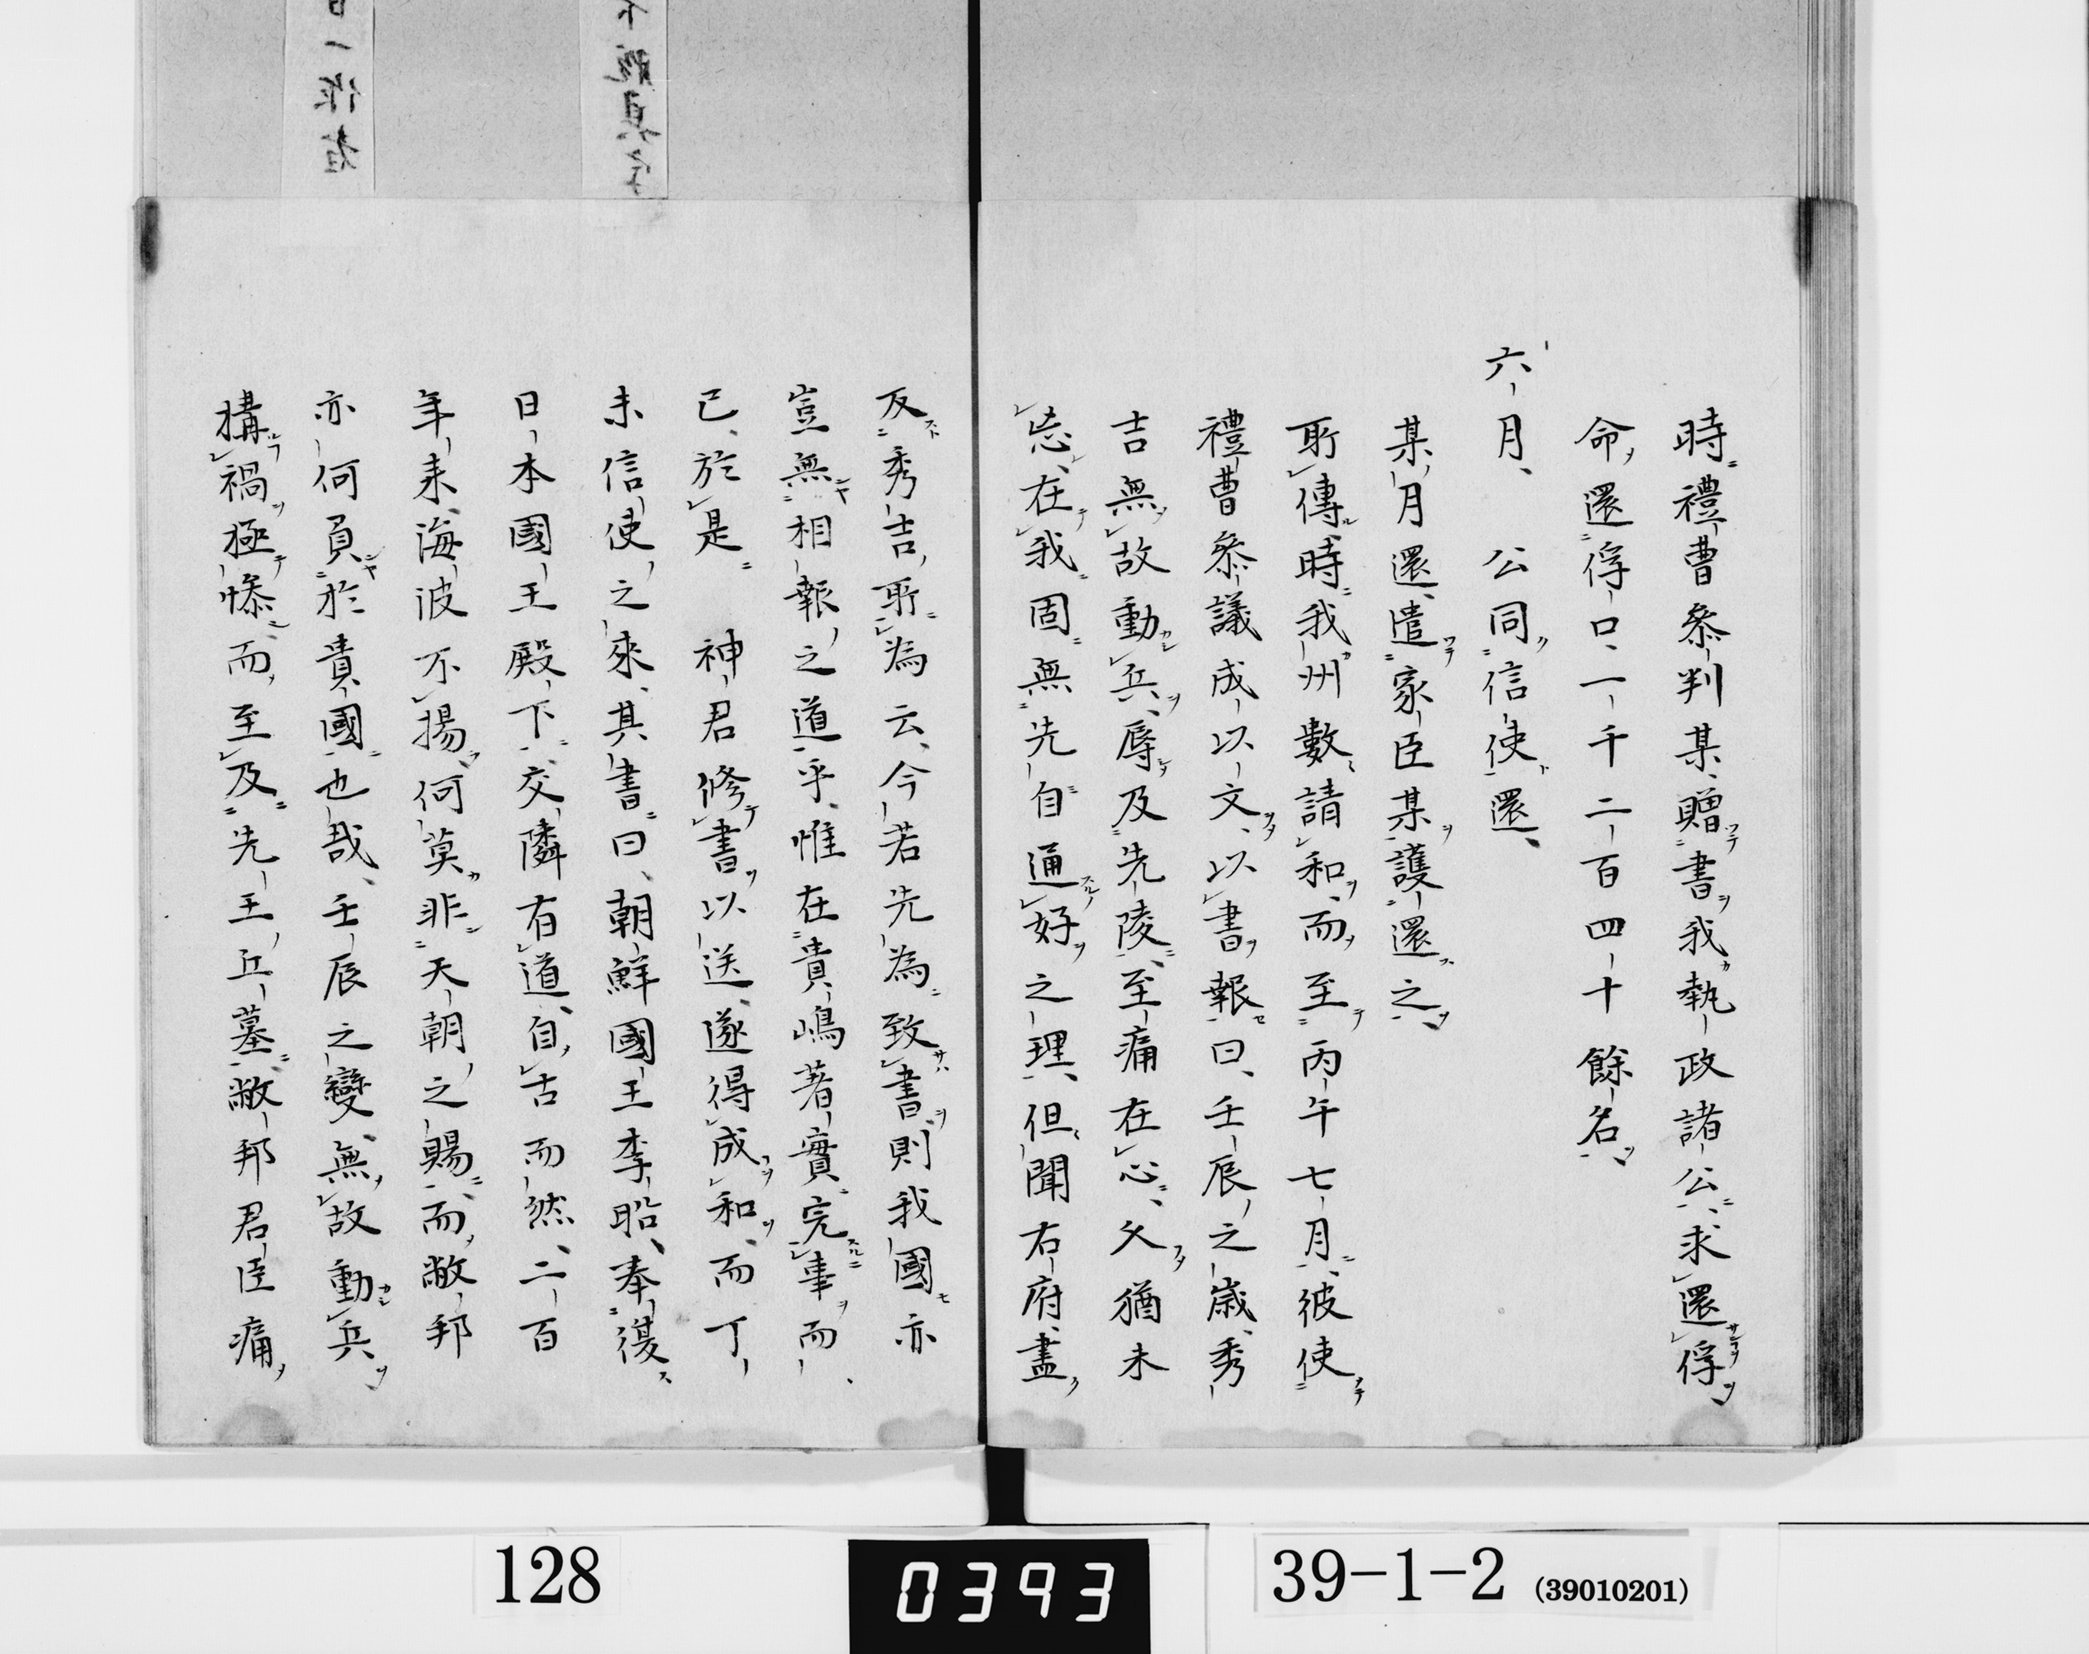 時禮曹叅判某贈書我執政諸公求還俘
命還俘口一千二百四十餘名
六月 公同信使還
某月還遣家臣某護還之
所傳時我州數請和而至丙午七月彼使
禮曹叅議成以文以書報曰壬辰之歲秀
吉無故動兵辱及先陵至痛在心久猶未
忘在我固無先自通好之理但聞右府盡
反秀吉所為云今若先為致書則我國亦
豈無相報之道乎惟在貴嶋著實完事而
已於是 神君修書以送遂得成和而丁
未信使之來其書曰朝鮮國王李昖奉復
日本國王殿下交隣有道自古而然二百
年来海波不揚何莫非天朝之賜而敝邦
亦何負於貴國也哉壬辰之變無故動兵
構禍極慘而至及先王丘墓敝邦君臣痛
一作者
128
0393
39-1-2 (39010201)